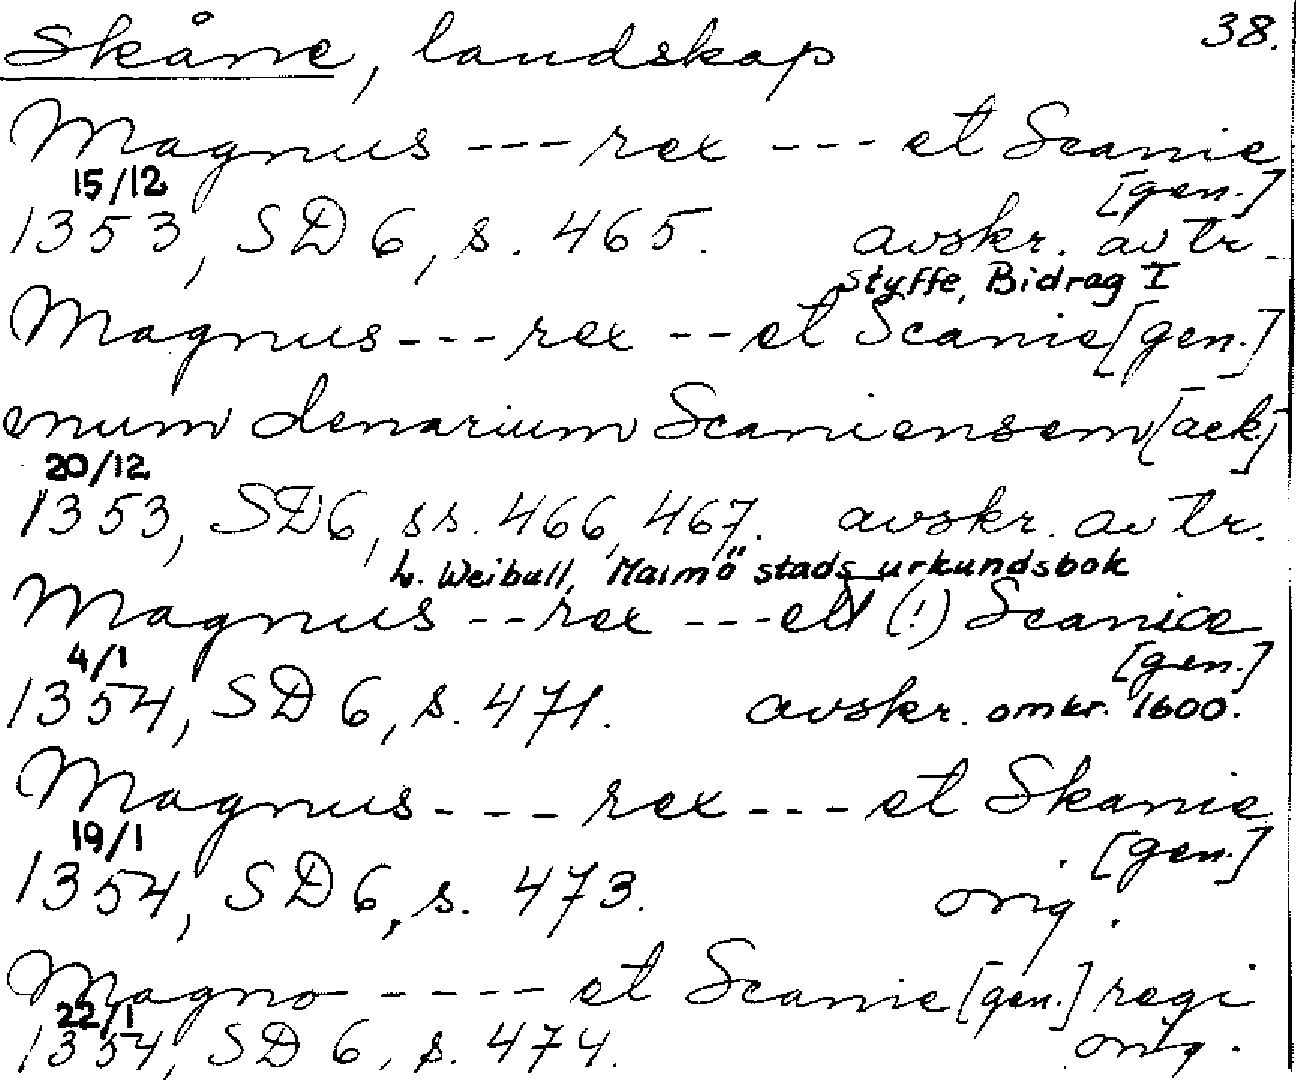 Skåne, landskap 38.
Magnus --- rex --- et Scanie
15/12 [gen.]
1353, SD 6, s. 465. avskr. av tr.
Styffe, Bidrag I
Magnus --- rex -- et Scanie [gen.]
unum denarium Scaniensem [ack.]
20/12
1353, SD 6, ss. 466, 467. avskr. av tr.
L. Weibull, Malmö stads urkundsbok
Magnus -- rex --- ett (!) Scaniæ
4/1 [gen.]
1354, SD 6, s. 471. avskr. omkr. 1600.
Magnus --- rex --- et Skanie
19/1 [gen.]
1354, SD 6, s. 473. orig.
Magno ---- et Scanie [gen.] regi
22/1
1354, SD 6, s. 474. orig.